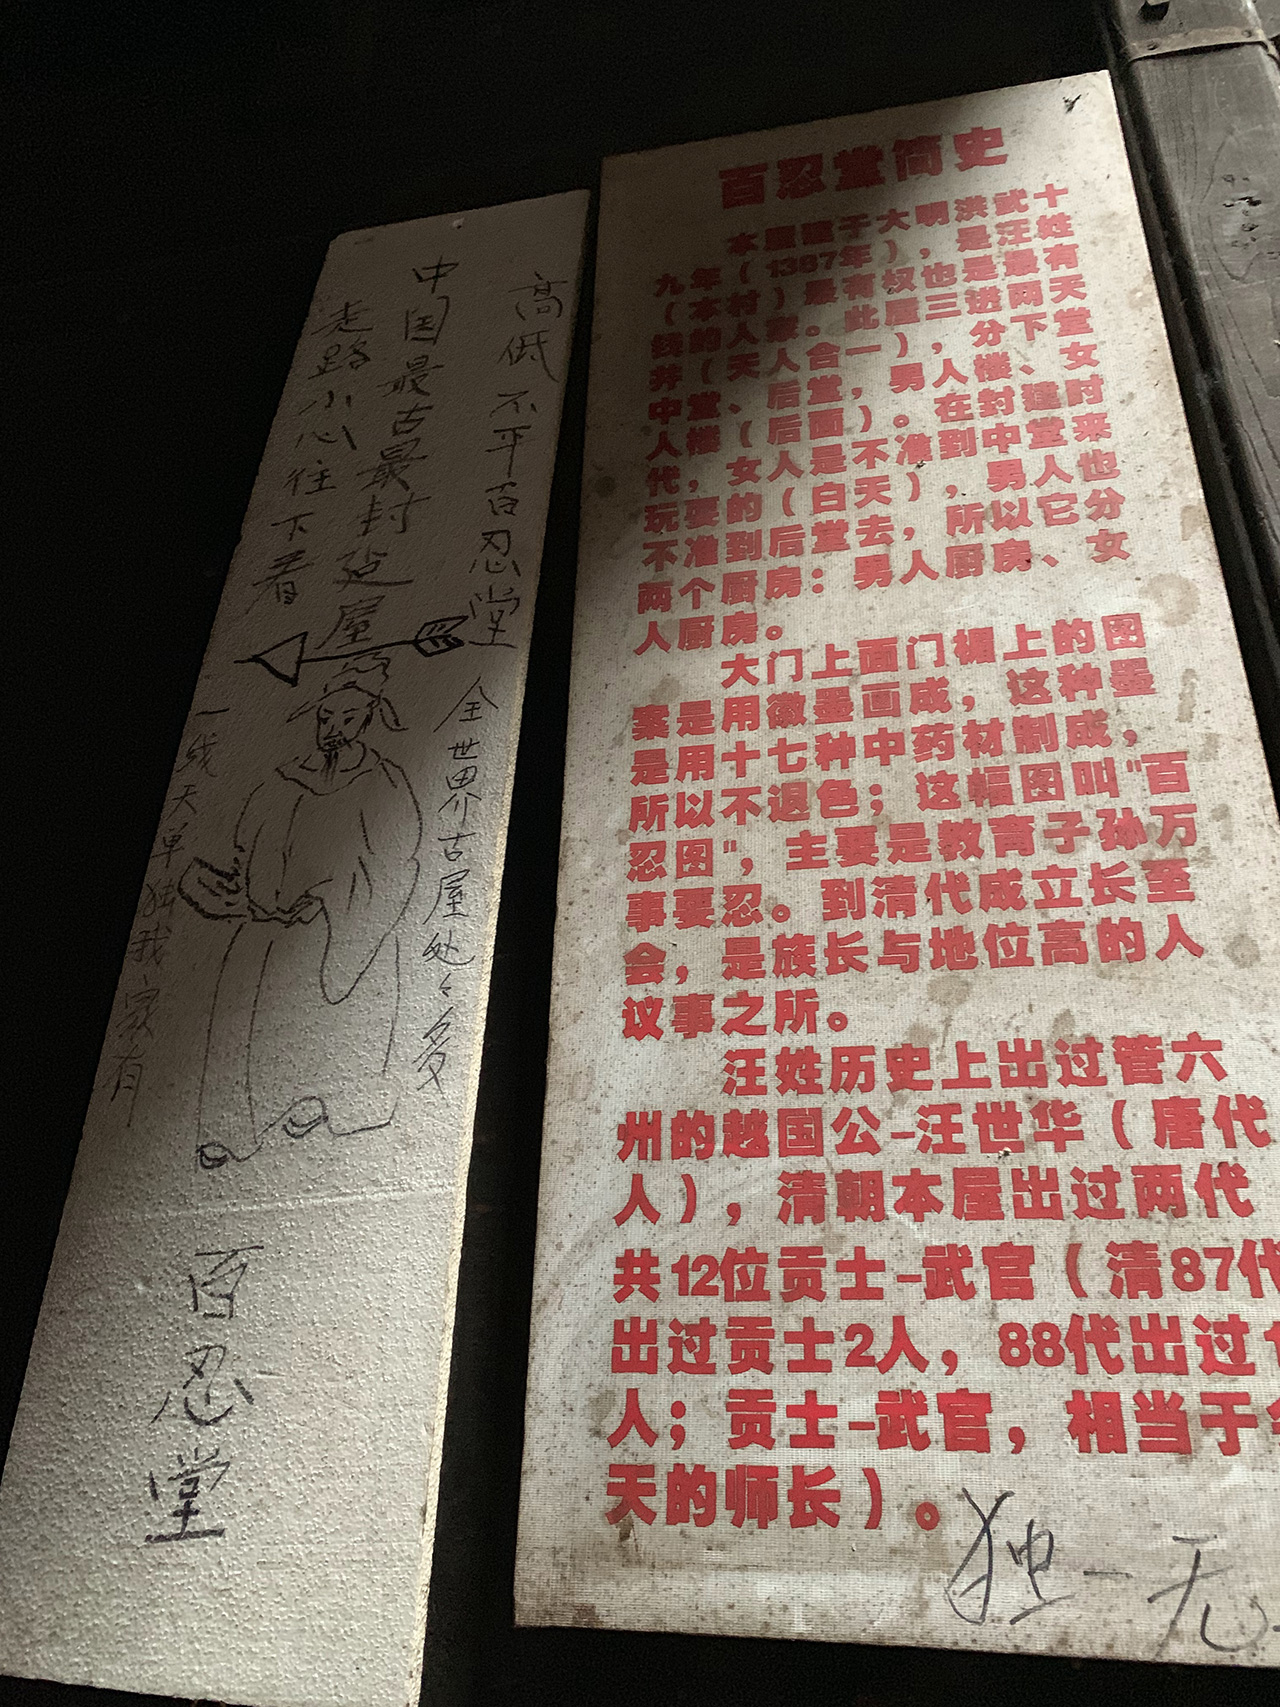 百忍堂简史
本屋建于大明洪武十
九年（1387年），是汪姓
（本村）最有权也是最有
钱的人家。此屋三进两天
井（天人合一），分下堂
中堂、后堂，男人楼、女
人楼（后面）。在封建时
代，女人是不准到中堂来
玩耍的（白天），男人也
不准到后堂去，所以它分
两个厨房：男人厨房、女
人厨房。
大门上面门楣上的图
案是用徽墨画成，这种墨
是用十七种中药材制成，
所以不退色；这幅图叫"百
忍图"，主要是教育子孙万
事要忍。到清代成立长至
会，是族长与地位高的人
议事之所。
汪姓历史上出过管六
州的越国公-汪世华（唐代
人），清朝本屋出过两代
共12位贡士-武官（清87代
出过贡士2人，88代出过
人；贡士-武官，相当于
天的师长）。
独一无
高低不平百忍堂
中国最古最封
屋
走路小心往下看
全世界古屋处々多
一线天单独我家有
百忍堂